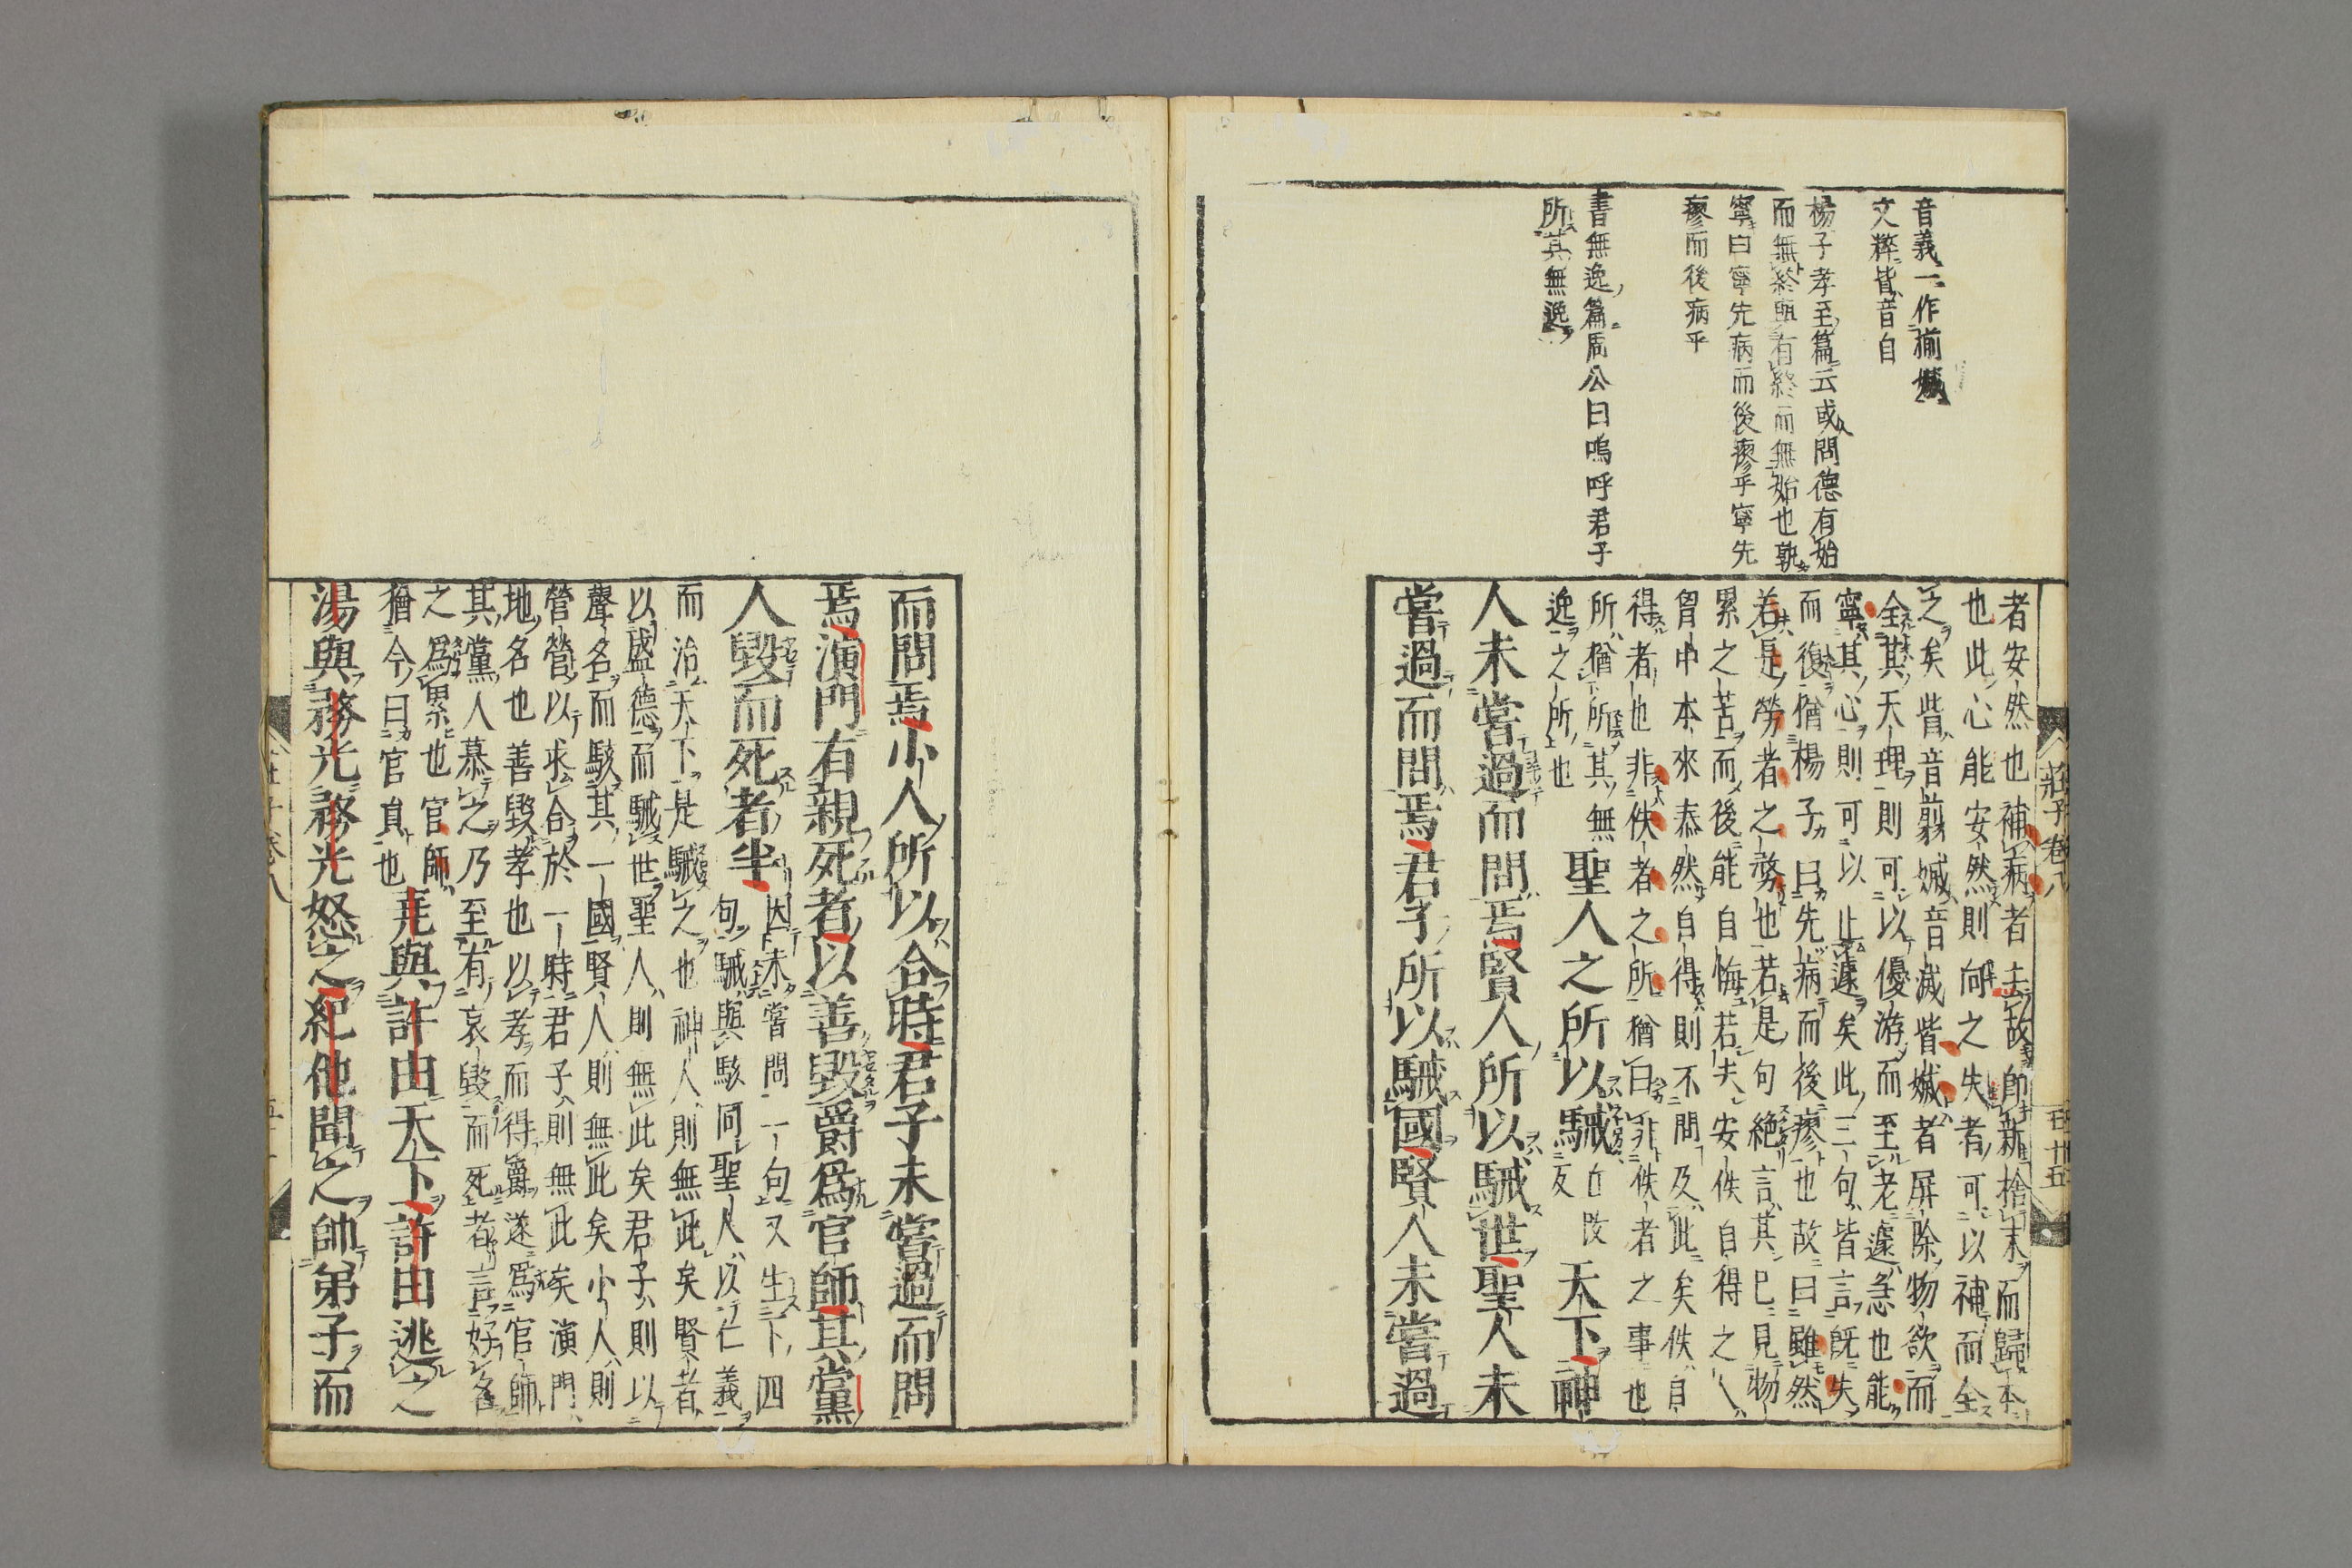 音義一作揃
文粹皆音自
楊子孝至篇云或問德有始
而無終與有終而無始也孰
寧曰寧先病而後瘳乎寧先
瘳而後病乎
書無逸篇周公曰嗚呼君子
所其無逸
莊子卷八
者安然也補病者去故卽新捨末而歸本
也此心能安然則向之失者可以補而全
之矣眥音翦搣音滅眥搣者屏除物欲而
全其天理則可以優游而至老遽急也能
寧其心則可以止遽矣此三句皆言旣失
而復猶楊子曰先病而後瘳也故曰雖然
若是勞者之務也若是句絶言其已見物
累之苦而後能自悔若夫安佚自得之人
胷中本來泰然自得則不問及此矣佚自
得者也非佚者之所猶曰非佚者之事也
所猶所其無
逸之所也
聖人之所以駴
天下神
人未嘗過而問焉賢人所以駴世聖人未
嘗過而問焉君子所以駴國賢人未嘗過
而問焉小人所以合時君子未嘗過而問
焉演門有親死者以善毀爵爲官師其黨
人毀而死者半
因未嘗問一句又生下四
句駴與駭同聖人以仁義
而治天下是駴之也神人則無此矣賢者
以盛德而駴世聖人則無此矣君子則以
聲名而駭其一國賢人則無此矣小人則
營營以求合於一時君子則無此矣演門
地名也善毀孝也以孝而得爵遂爲官師
其黨人慕之乃至有哀毀而死者言好名
之爲累也官師
猶今曰官員也
堯與許由天下許由逃之
湯與務光務光怒之紀他聞之帥弟子而